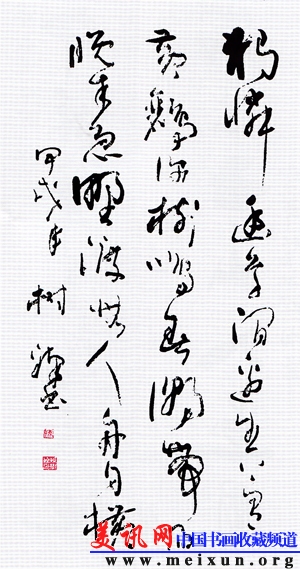 独憐幽草澗邊生上有
黄鸝深樹鳴春潮帶雨
晚来急野渡無人舟自横
甲戌年树 书
美讯网 中国书画收藏频道
www.meixun.org